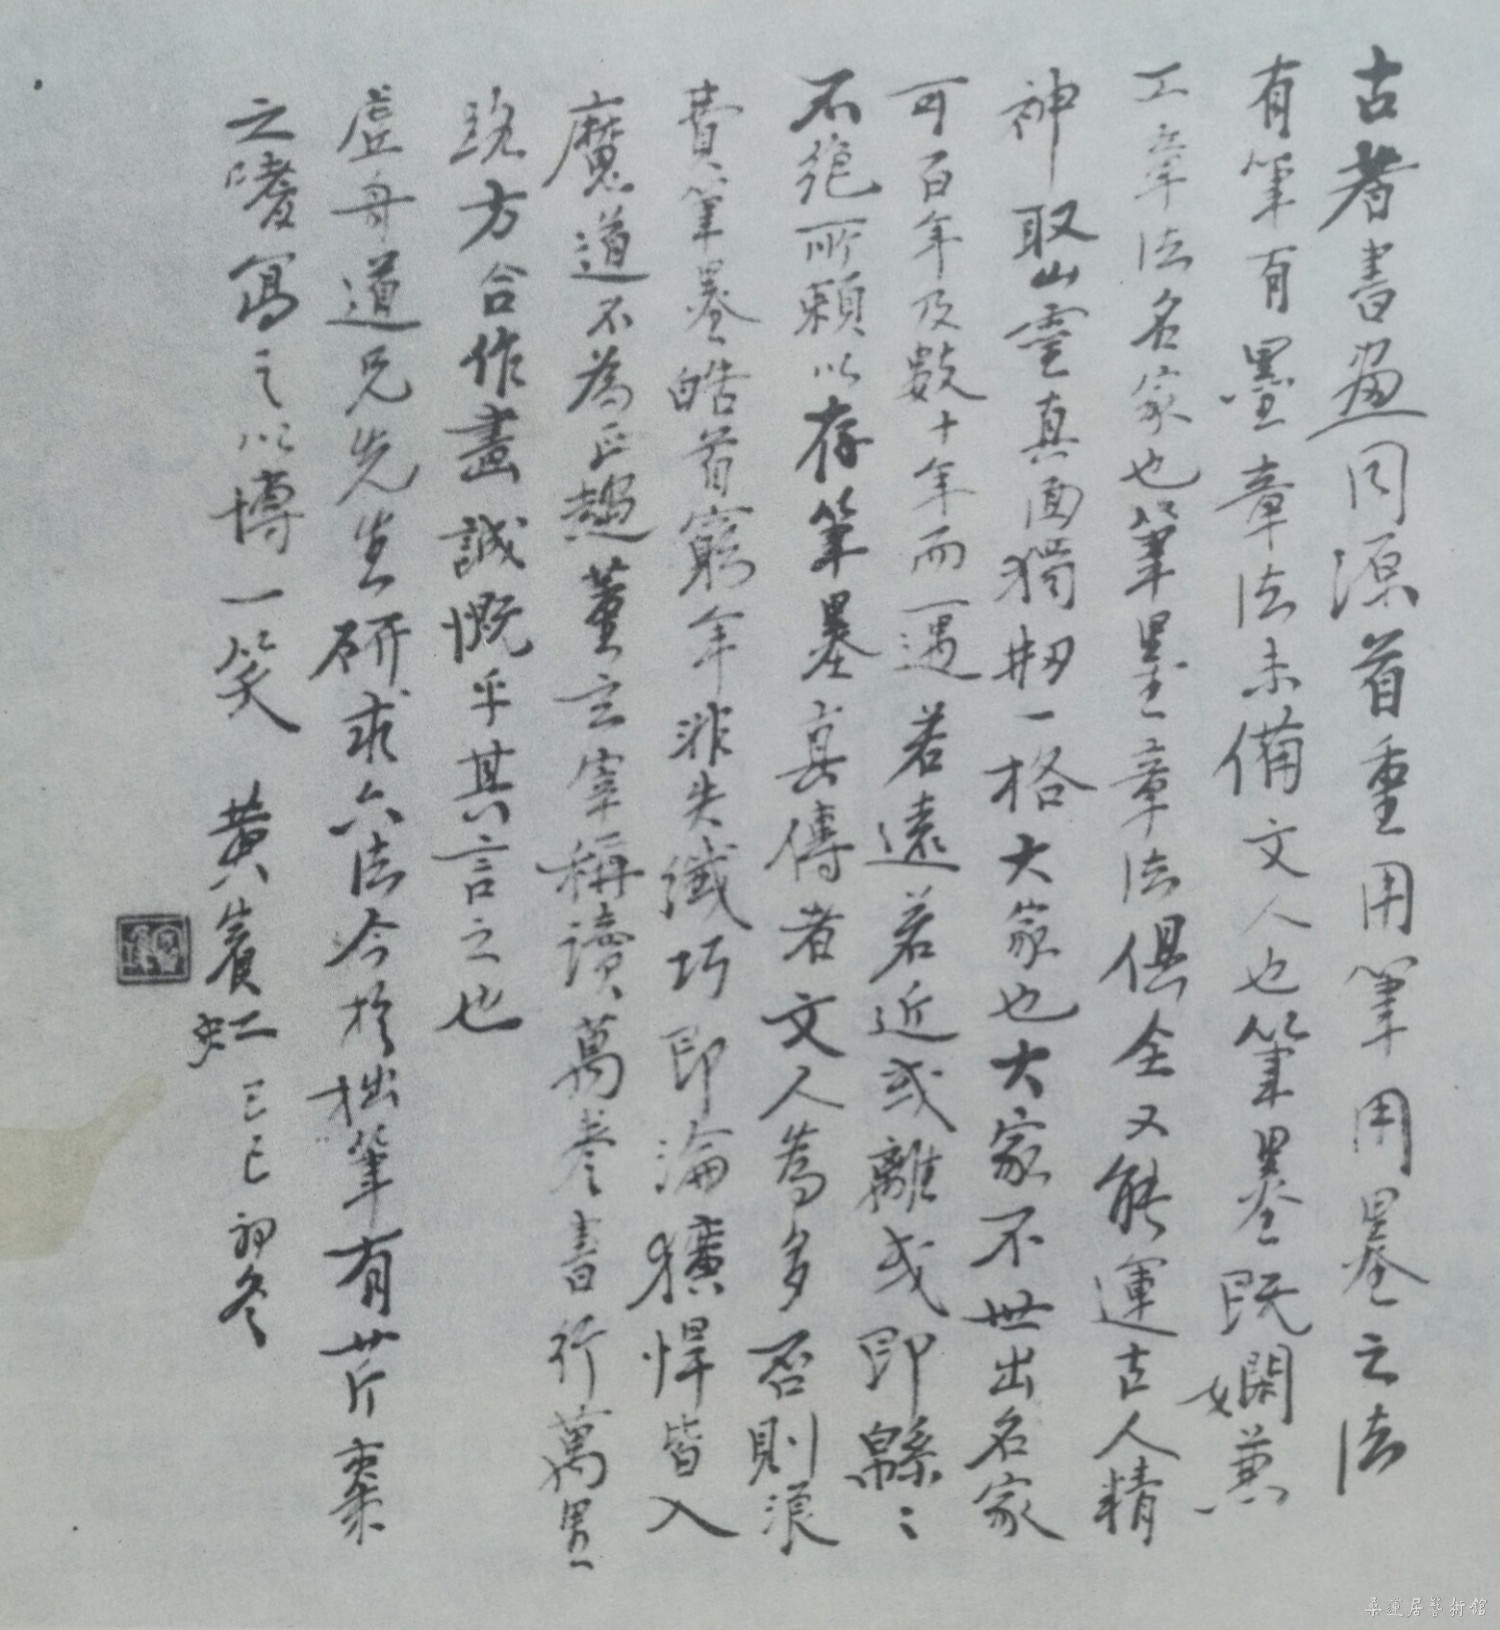 古者書畫同源首重用筆用墨之法
有筆有墨章法未備文人也筆墨既嫻兼
工章法名家也筆墨章法俱全又能運古人精
神取山靈真面獨刱一格大家也大家不世出名家
可百年及數十年而一遇若遠若近或離或即緜〻
不絕所賴以存筆墨真傳者文人為多否則浪
費筆墨皓首窮年非失纖巧即淪獷悍皆入
魔道不為正趨董玄宰稱讀萬卷書行萬里
路方合作畫誠慨乎其言之也
虛舟道兄先生研求六法今於拙筆有芹棗
之嗜寫之以博一笑 黃賓虹己巳初冬
桑蓮居藝術館